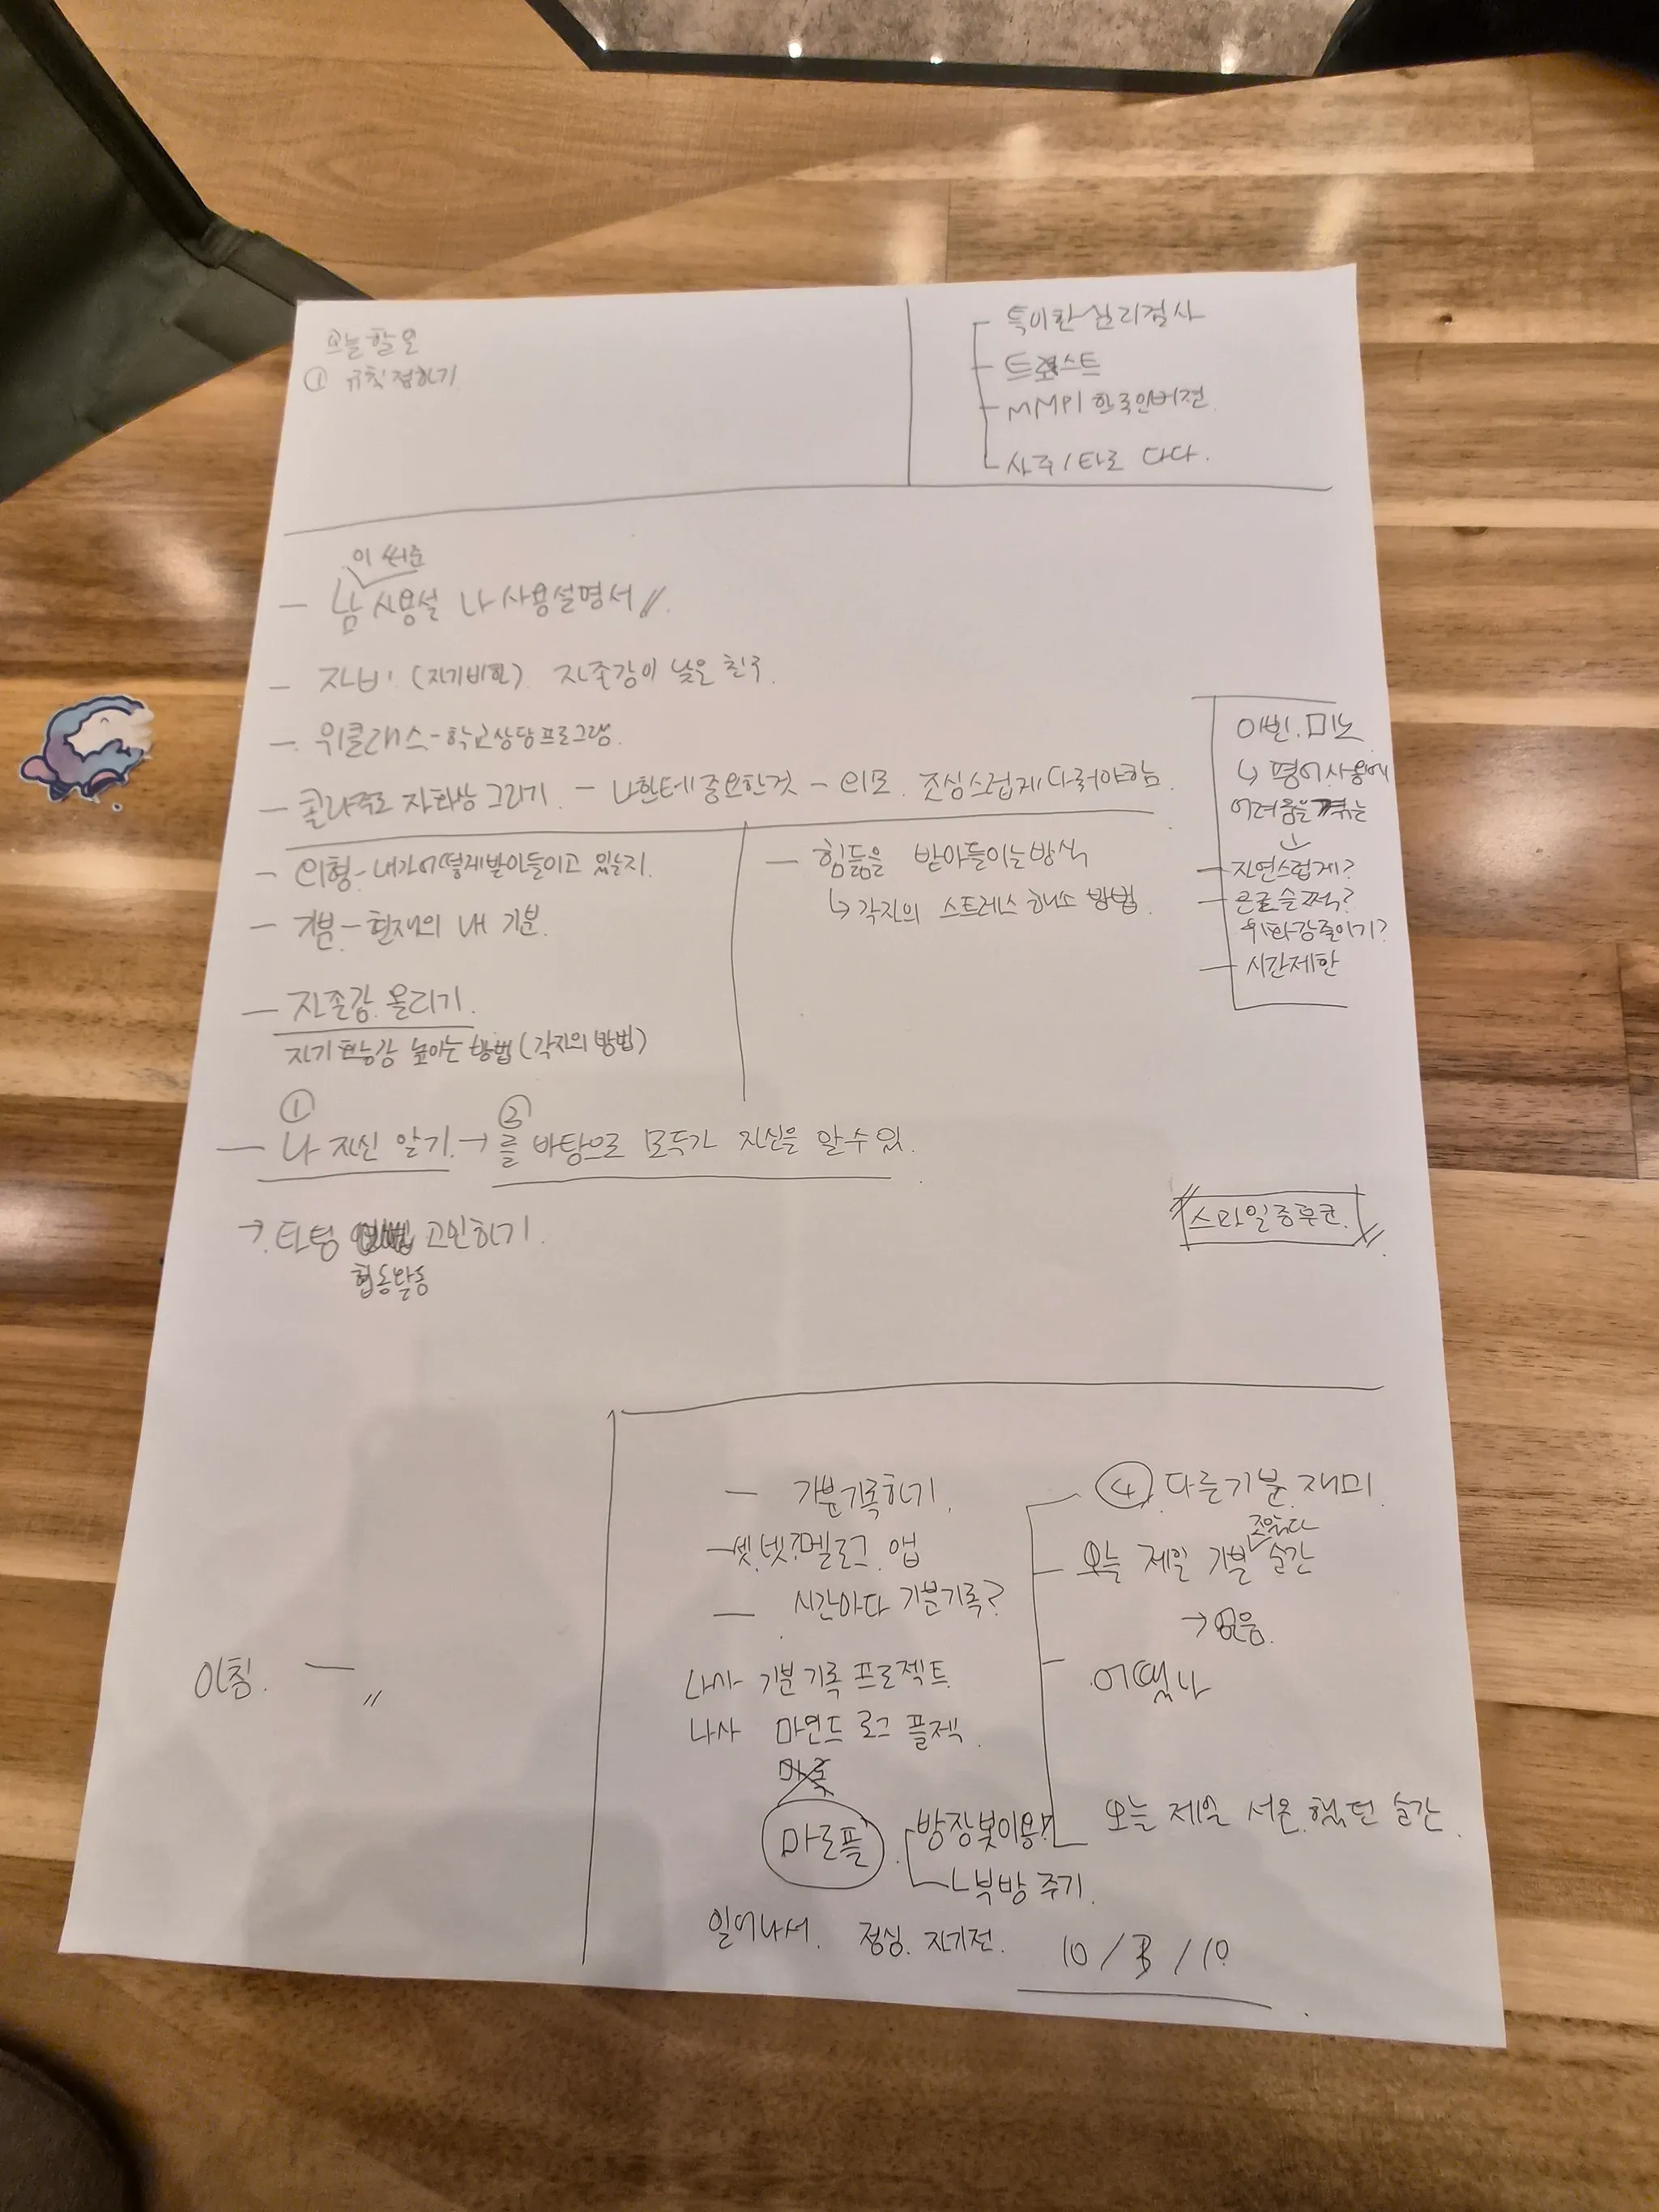 오늘할일
① 규칙정하기
특이한 심리검사
트로스트
MMPI 한국인버전
사주/타로 다다.
이 써준
— 남 사용설 나 사용설명서 //.
— 자비 (자기비하) 자존감이 낮은 친구.
— 위클래스 - 학교상담프로그램.
— 콜라주로 자화상 그리기. — 나한테 중요한것 — 외모. 조심스럽게 다뤄야함.
— 외형 - 내가 어떻게 받아들이고 있는지.
— 기분 - 현재의 내 기분.
— 자존감 올리기.
자기 효능감 높이는 방법 (각자의 방법)
— 힘듦을 받아들이는 방식
↳ 각자의 스트레스 해소 방법.
미노
↳ 평어사용에
어려움을 겪는
↓
— 자연스럽게?
— 은근슬쩍?
위화감 줄이기?
— 시간제한
① ②
— 나 자신 알기. → 를 바탕으로 모두가 자신을 알 수 있.
→. 타텀 고민하기.
협동활동
스마일증후군.
아침. — 〃
— 기분기록하기.
멜로그 앱
— 시간마다 기분기록?
나사 기분 기록 프로젝트
나사 마인드 로그 플젝.
마로플
방장봇이용?
부방 주기.
일어나서. 점심. 자기전.
④ 다른기분. 재미.
좋았다
오늘 제일 기분 순간
→ 없음.
어땠나
오늘 제일 서운 했던 순간.
10 / 3 / 10